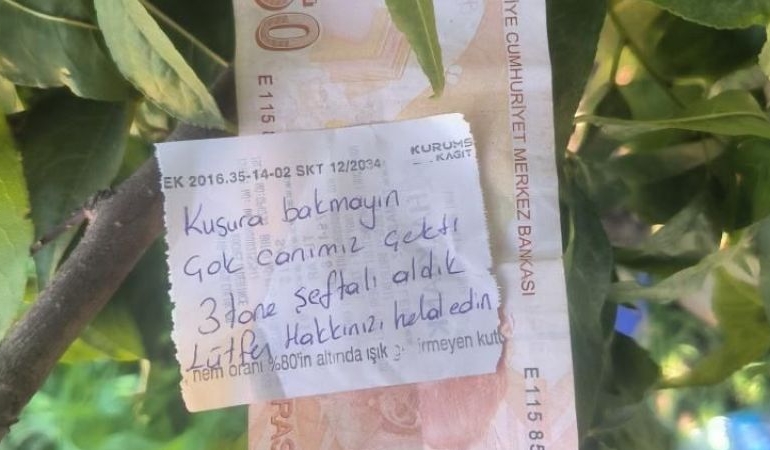 50
E 115 8
İYE CUMHURİYET MERKEZ BANKASI
KURUMS
KAĞIT
EK 2016.35-14-02 SKT 12/2034
Kusura bakmayın
Çok canımız çekti
3 tane şeftali aldık
Lütfen Hakkınızı helal edin
nem oranı %80'in altında ışık irmeyen kutu
E 115 85
RAS